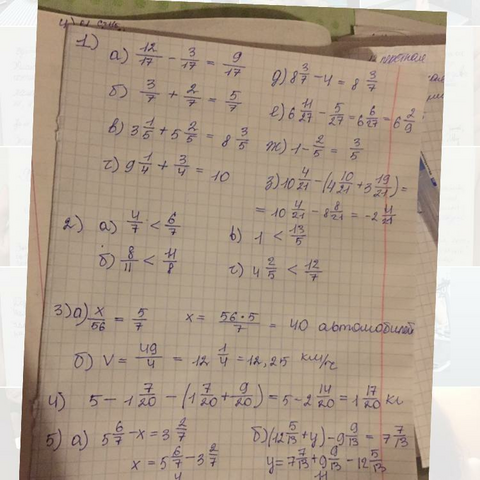 1) а) 12/17 - 3/17 = 9/17
б) 3/7 + 2/7 = 5/7
в) 3 1/5 + 5 2/5 = 8 3/5
г) 9 1/4 + 3/4 = 10
д) 8 3/7 - 4 = 8 3/7
е) 6 11/27 - 5/27 = 6 6/27 = 6 2/9
ж) 1 - 2/5 = 3/5
з) 10 4/21 - (4 10/21 + 3 19/21) =
= 10 4/21 - 8 8/21 = -2 4/21
2) а) 4/7 < 6/7
б) 8/11 < 11/8
в) 1 < 13/5
г) 4 2/5 < 12/7
3) а) x/56 = 5/7 x = 56·5/7 = 40 автомобилей
б) V = 49/4 = 12 1/4 = 12,25 км/ч
4) 5 - 1 7/20 - (1 7/20 + 9/20) = 5 - 2 14/20 = 1 17/20 кг
5) а) 5 6/7 - x = 3 2/7
x = 5 6/7 - 3 2/7
б) (12 5/13 + y) - 9 9/13 = 7 7/13
y = 7 7/13 + 9 9/13 - 12 5/13